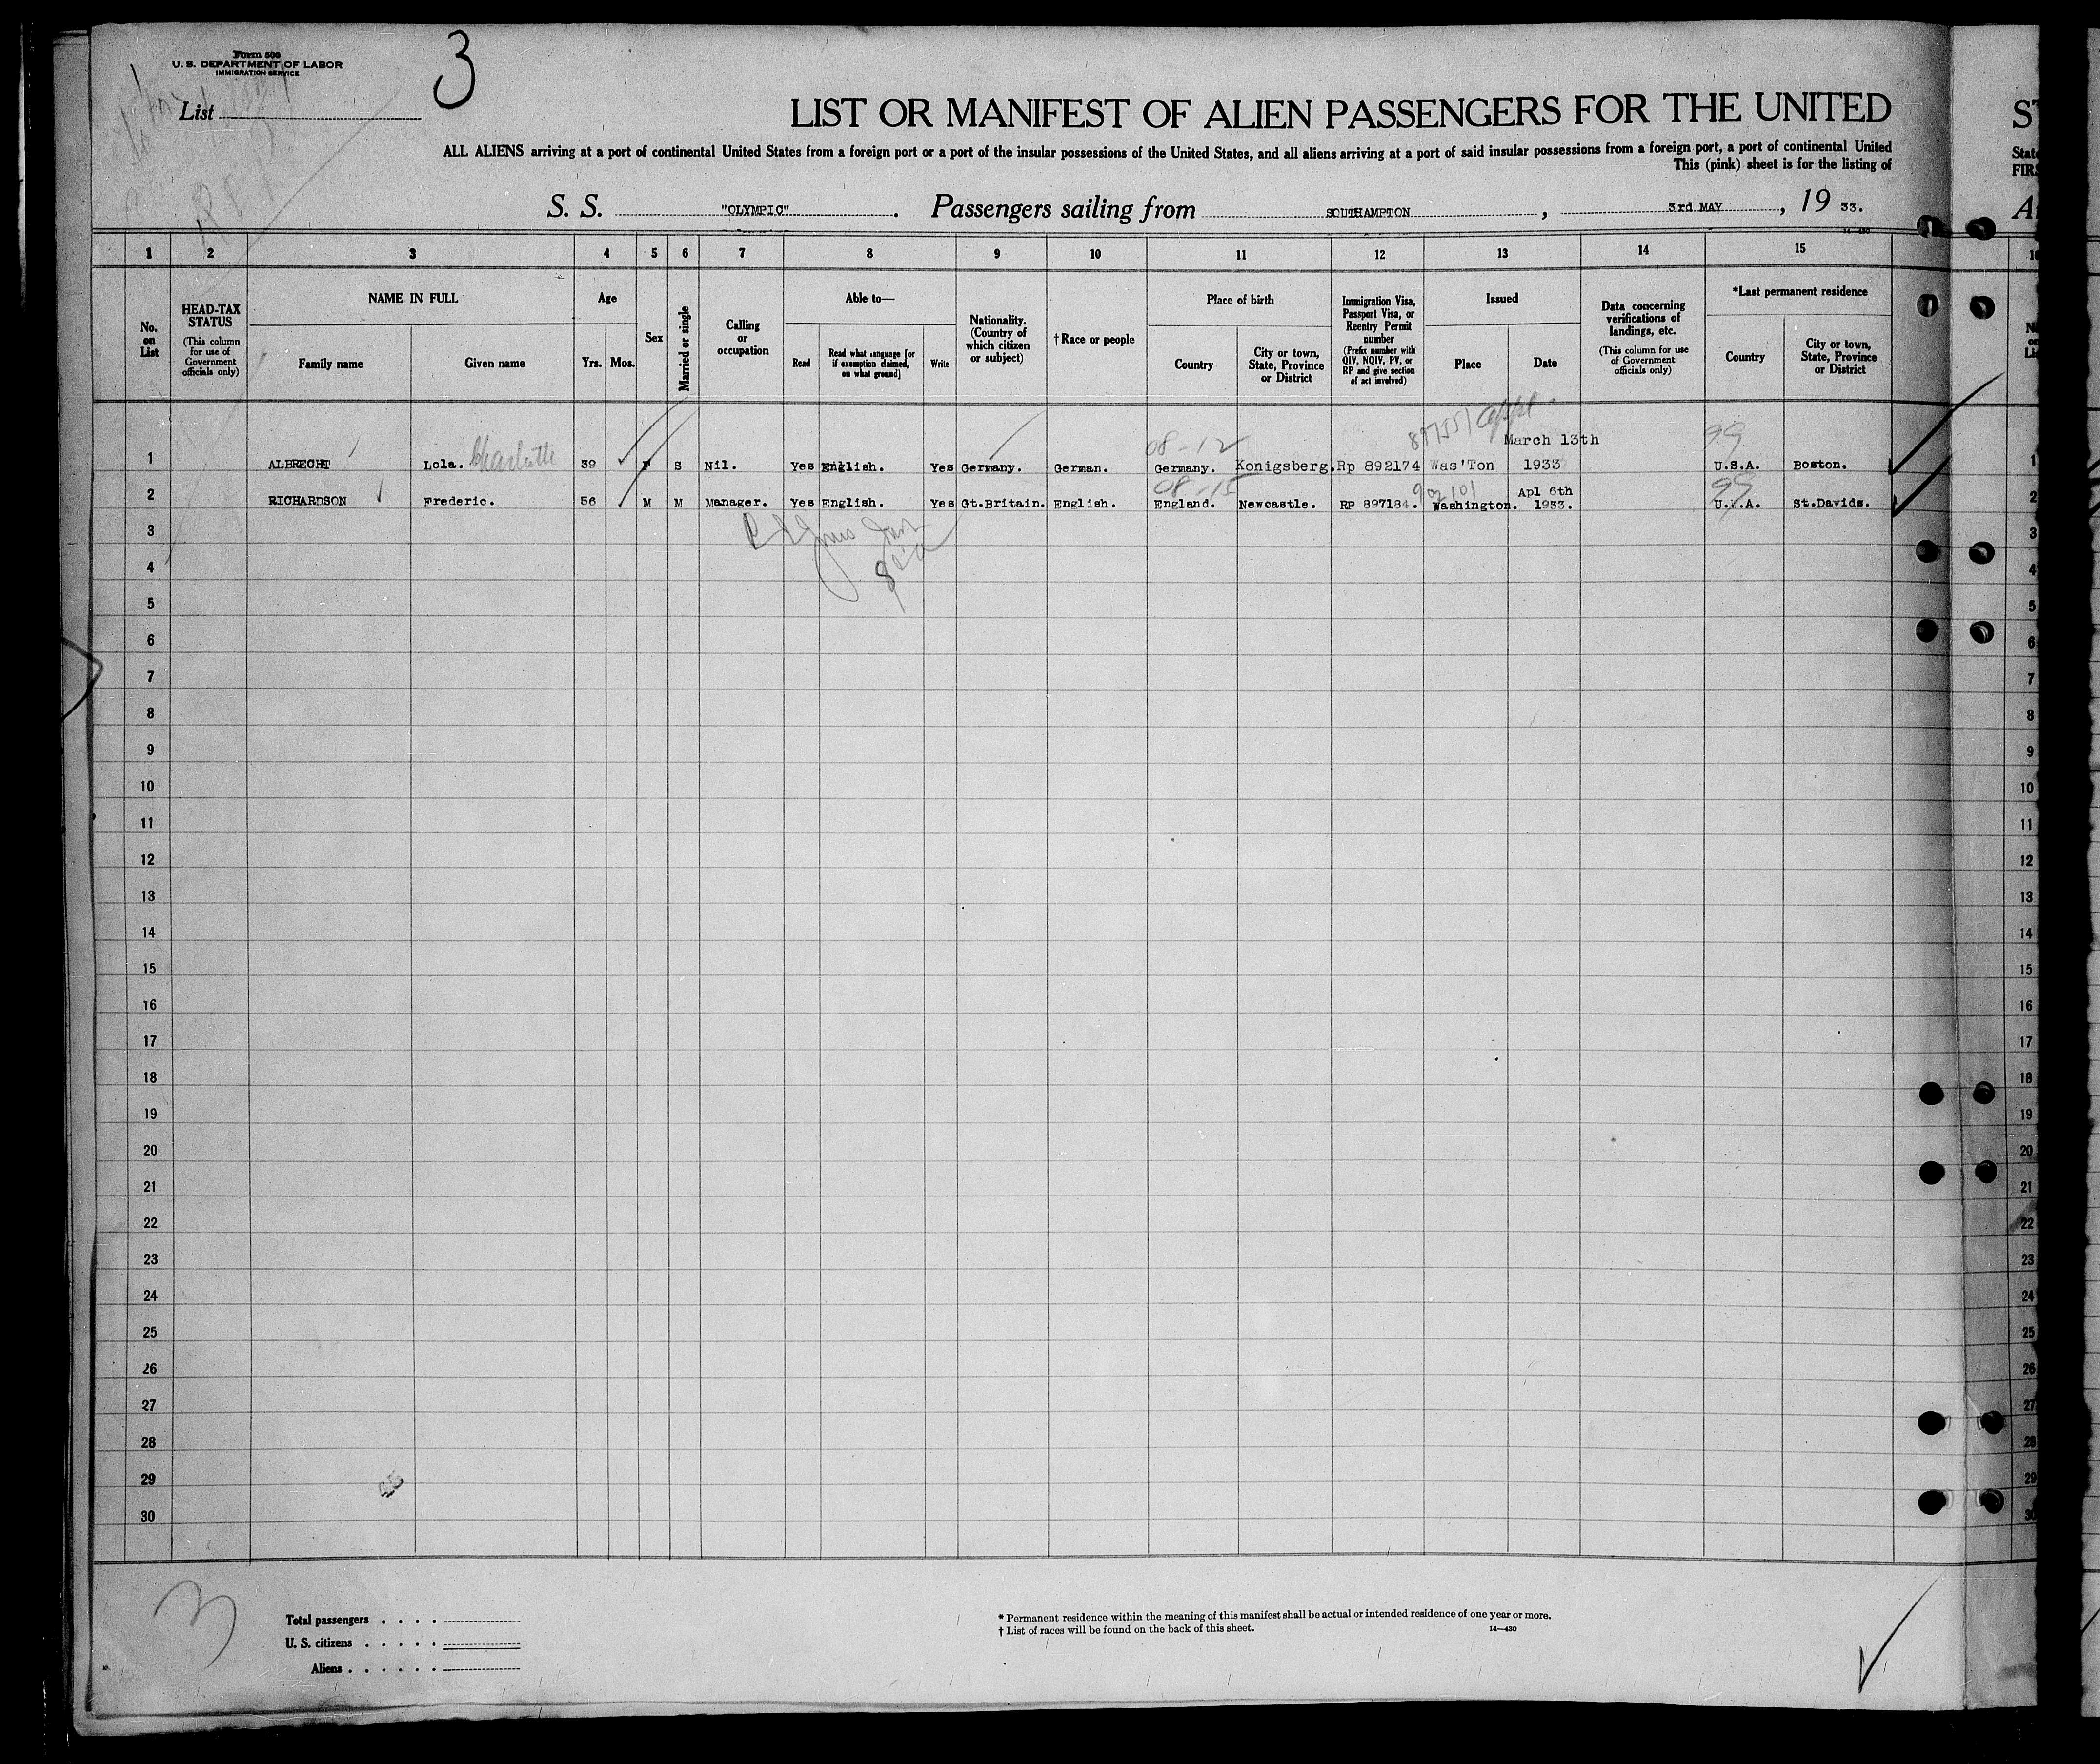 Form 500
U. S. DEPARTMENT OF LABOR
IMMIGRATION SERVICE
3
List
LIST OR MANIFEST OF ALIEN PASSENGERS FOR THE UNITED
ALL ALIENS arriving at a port of continental United States from a foreign port or a port of the insular possessions of the United States, and all aliens arriving at a port of said insular possessions from a foreign port, a port of continental United
This (pink) sheet is for the listing of
S. S. "OLYMPIC". Passengers sailing from SOUTHAMPTON, 3rd MAY, 19 33.
1 2 3 4 5 6 7 8 9 10 11 12 13 14 15
No. on List
HEAD-TAX STATUS
(This column for use of Government officials only)
NAME IN FULL
Family name
Given name
Age
Yrs. Mos.
Sex
Married or single
Calling or occupation
Able to—
Read
Read what language [or if exemption claimed, on what ground]
Write
Nationality. (Country of which citizen or subject)
† Race or people
Place of birth
Country
City or town, State, Province or District
Immigration Visa, Passport Visa, or Reentry Permit number
(Prefix number with QIV, NQIV, PV, or RP and give section of act involved)
Issued
Place
Date
Data concerning verifications of landings, etc.
(This column for use of Government officials only)
*Last permanent residence
Country
City or town, State, Province or District
08-12 897551 appl. March 13th 99
1 ALBRECHT Lola. Charlotte 39 F S Nil. Yes English. Yes Germany. German. Germany. Konigsberg. Rp 892174 Was'Ton 1933 U.S.A. Boston. 1
08-15 902101 Apl 6th 99
2 RICHARDSON Frederic. 56 M M Manager. Yes English. Yes Gt.Britain. English. England. Newcastle. RP 897184. Washington. 1933. U.S.A. St.Davids. 2
3 3
4 4
5 5
6 6
7 7
8 8
9 9
10 10
11 11
12 12
13 13
14 14
15 15
16 16
17 17
18 18
19 19
20 20
21 21
22 22
23 23
24 24
25 25
26 26
27 27
28 28
29 29
30 30
3
Total passengers
U. S. citizens
Aliens
* Permanent residence within the meaning of this manifest shall be actual or intended residence of one year or more.
† List of races will be found on the back of this sheet.
14—430